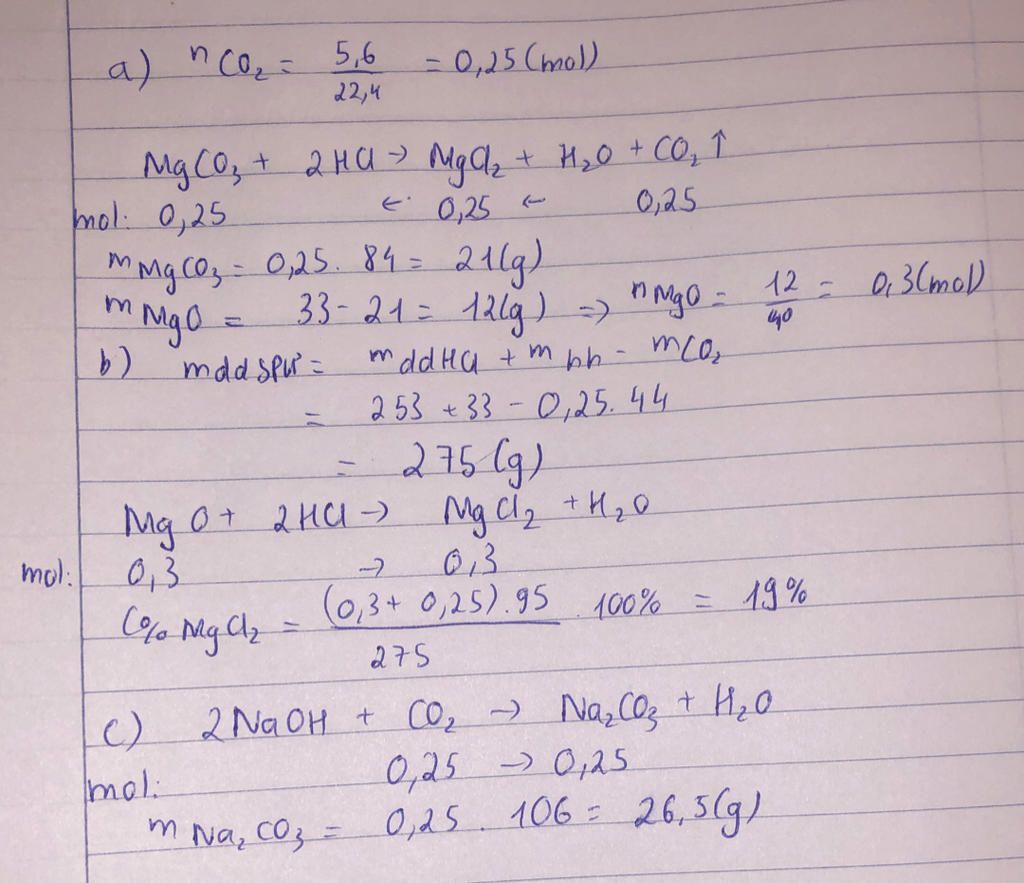 a) nCO₂ = 5,6/22,4 = 0,25 (mol)
MgCO₃ + 2HCl → MgCl₂ + H₂O + CO₂↑
mol: 0,25 ← 0,25 ← 0,25
mMgCO₃ = 0,25. 84 = 21(g)
mMgO = 33 - 21 = 12(g) => nMgO = 12/40 = 0,3(mol)
b) mddspứ = mddHCl + mhh - mCO₂
= 253 + 33 - 0,25. 44
= 275 (g)
MgO + 2HCl → MgCl₂ + H₂O
mol: 0,3 → 0,3
C% MgCl₂ = (0,3 + 0,25).95/275 . 100% = 19%
c) 2NaOH + CO₂ → Na₂CO₃ + H₂O
mol: 0,25 → 0,25
mNa₂CO₃ = 0,25 . 106 = 26,5(g)